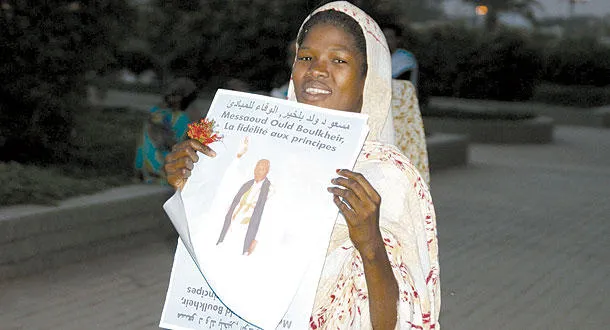 مسعود ولد بلخير, الوفاء للمبادئ
Messaoud Ould Boulkheir,
La fidélité aux principes
principes
Boulkheir,